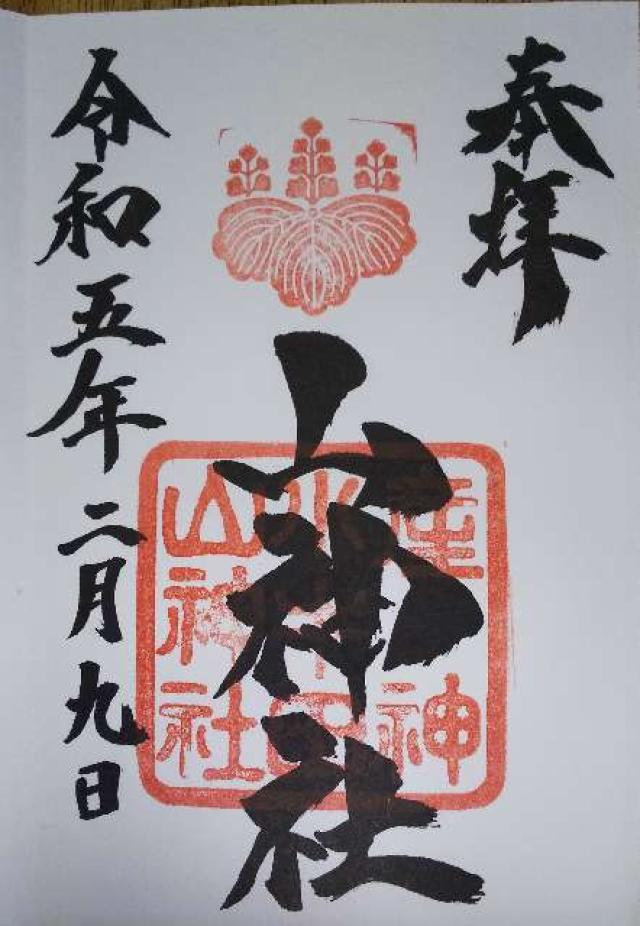 奉拝
山神社
山神社
令和五年二月九日